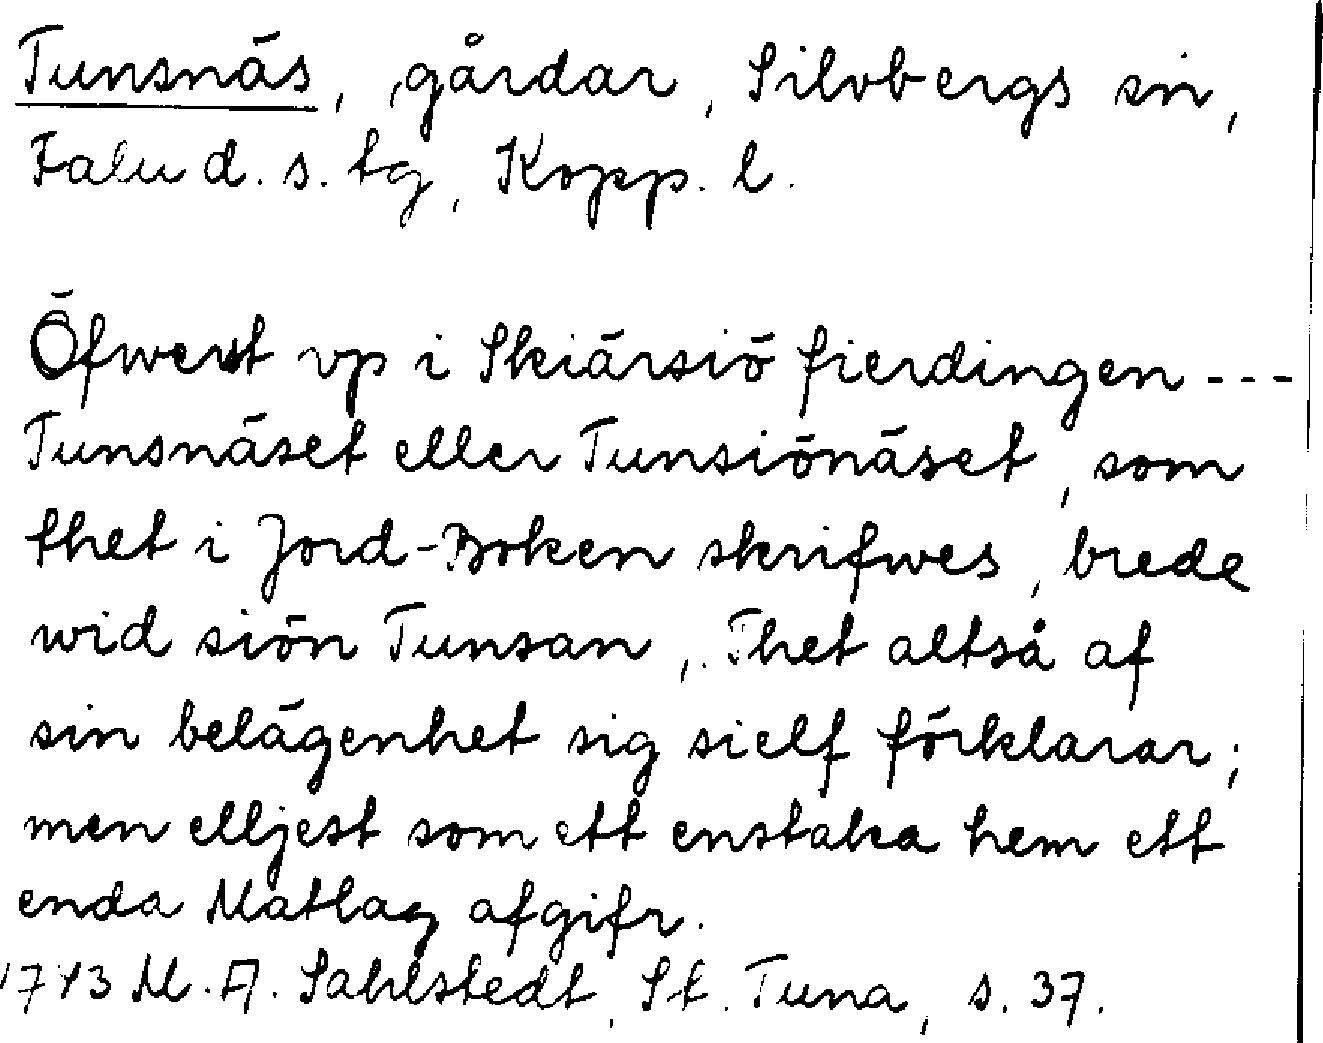 Tunsnäs, gårdar, Silvbergs sn,
Falu d. s. tg, Kopp. l.
Öfwerst vp i Skiärsiö fierdingen ---
Tunsnäset eller Tunsiönäset, som
thet i Jord-Boken skrifwes, brede
wid siön Tunsan, Thet altså af
sin belägenhet sig sielf förklarar;
men elljest som ett enstaka hem ett
enda Matlag afgifr.
1743 M. A. Sahlstedt, St. Tuna, s. 37.